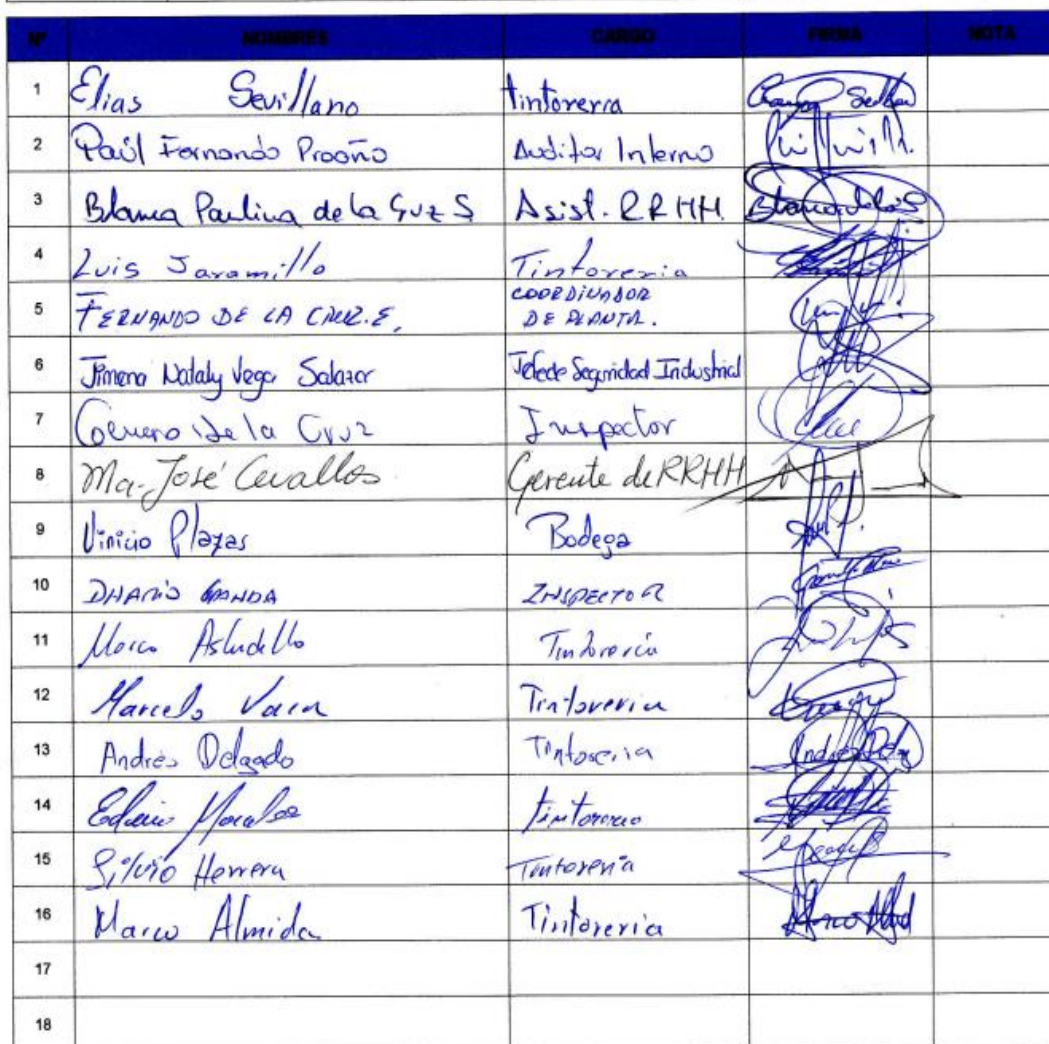 Nº NOMBRES CARGO FIRMA NOTA
1 Elias Sevillano tintoreria
2 Paúl Fernando Proaño Auditor Interno
3 Blanca Paulina de la Cruz S Asist. RRHH
4 Luis Jaramillo Tintoreria
5 FERNANDO DE LA CRUZ.E. COORDINADOR
DE PLANTA.
6 Jimena Nataly Vega Salazar Jefe de Seguridad Industrial
7 Genaro de la Cruz Inspector
8 Ma. José Cevallos Gerente de RRHH
9 Vinicio Plazas Bodega
10 INSPECTOR
11 Marco Astudillo Tintoreria
12 Marcelo Vaca Tintoreria
13 Andrés Delgado Tintoreria
14 Morales
15 Silvio Herrera Tintoreria
16 Marco Almida Tintoreria
17
18